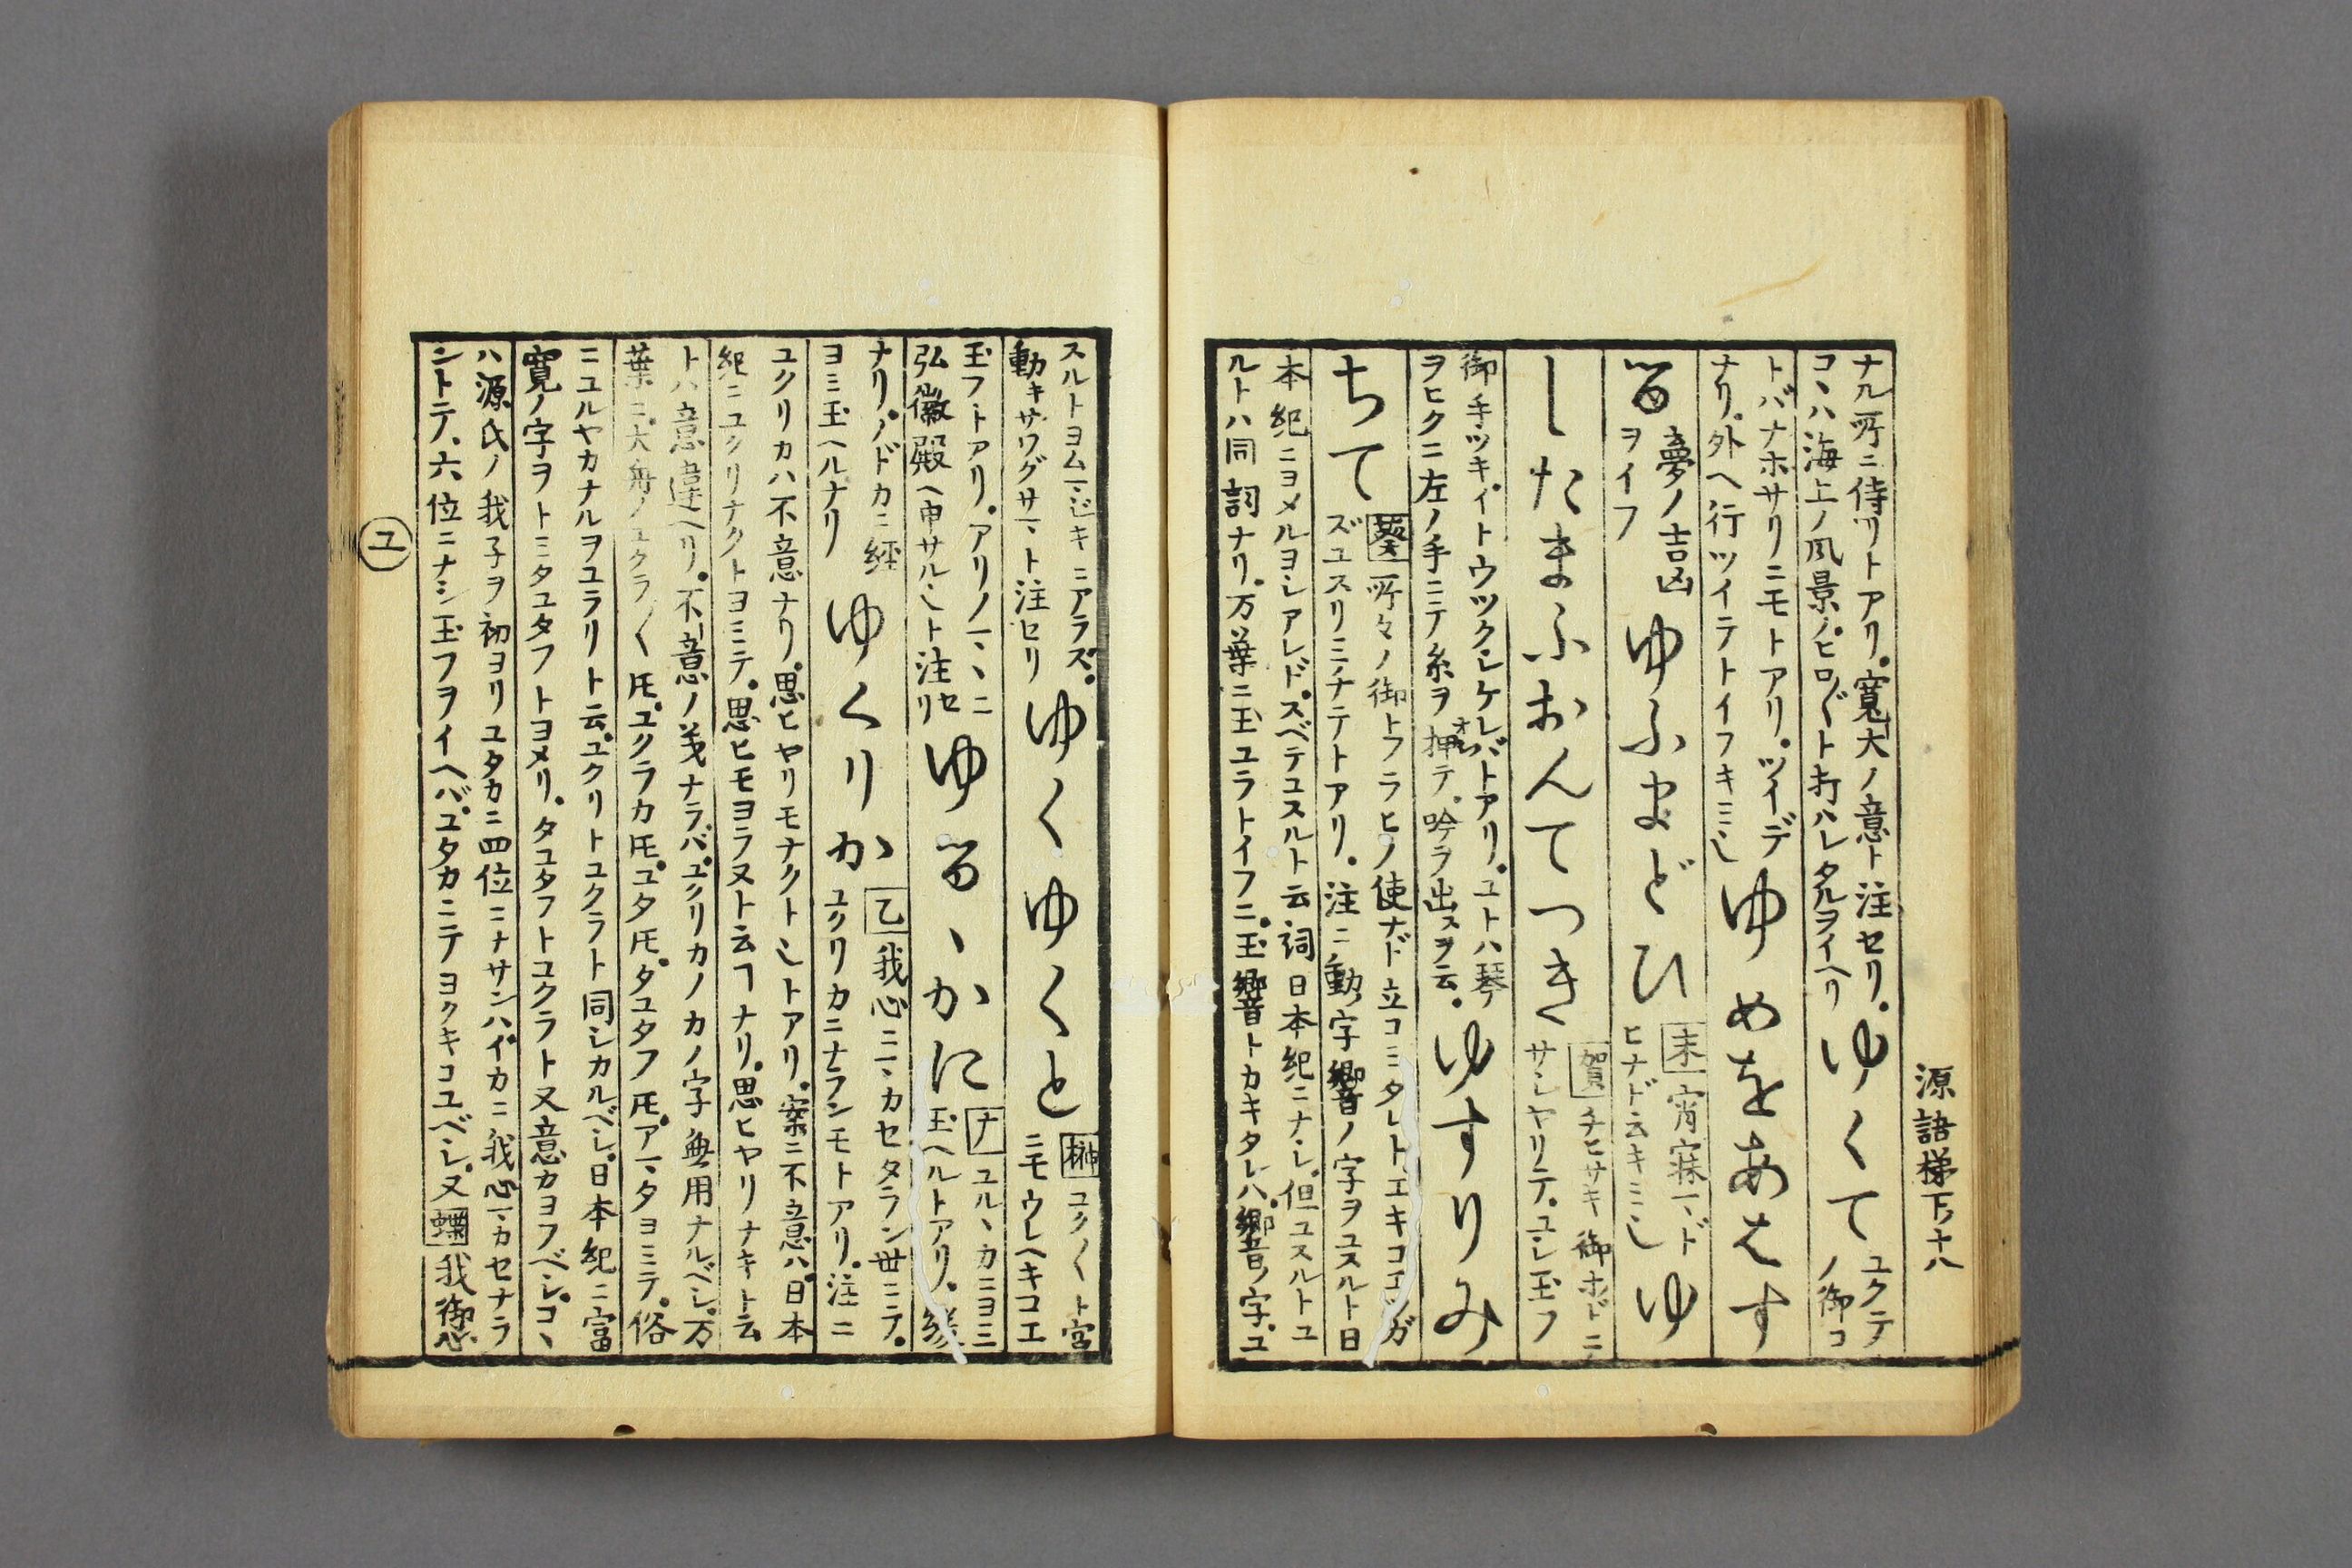 源語梯下ノ十八
ナル所ニ侍リトアリ。寛大ノ意ト注セリ。
コヽハ海上ノ風景ノヒロ〴〵ト打ハレタルヲイヘリ
ゆくて
ユクテ
ノ御コ
トバナホサリニモトアリ。ツイデ
ナリ。外ヘ行ツイデトイフキミ也
ゆめをあはす
る
夢ノ吉凶
ヲイフ
ゆふまどひ
末 宵寐マド
ヒナド云キミ也
ゆ
したまふおんてつき
賀 チヒサキ御ホドニ
サシヤリテ。ユシ玉フ
御手ツキ。イトウツクシケレバトアリ。ユトハ琴
ヲヒクニ左ノ手ニテ糸ヲ押テ。吟ヲ出スヲ云。
ゆすりみ
ちて
葵 所々ノ御トフラヒノ使ナド立コミタレト。エキコエツガ
ズユスリミチテトアリ。注ニ動ノ字響ノ字ヲユスルト日
本紀ニヨメルヨシアレド。スベテユスルト云詞日本紀ニナシ。但ユスルトユ
ルトハ同詞ナリ。万葉ニ玉ユラトイフニ。玉響トカキタレハ。響ノ字。ユ
スルトヨムマジキニアラズ。
動キサワグサマト注セリ
ゆくゆくと
榊 ユク〳〵ト宮
ニモウレヘキコエ
玉フトアリ。アリノマヽニ
弘徽殿ヘ申サル也ト注セリ
ゆるゝかに
ナ ユルヽカニヨミ
玉ヘルトアリ。緩
ナリ。ノドカニ經
ヨミ玉ヘルナリ
ゆくりか
乙 我心ニマカセタラン世ニテ。
ユクリカニナランモトアリ。注ニ
ユクリカハ不意ナリ。思ヒヤリモナクト也トアリ。案ニ不意ハ。日本
紀ニユクリナクトヨミテ。思ヒモヨラヌト云フナリ。思ヒヤリナキト云
トハ意違ヘリ。不意ノ義ナラバ。ユクリカノカノ字無用ナルベシ。万
葉ニ。大舟ノユクラ〳〵トモ。ユクラカトモ。ユタトモ。タユタフトモ。アマタヨミテ。俗
ニユルヤカナルヲユラリト云。ユクリトユクラト同シカルベシ。日本紀ニ富
寛ノ字ヲトミタユタフトヨメリ。タユタフトユクラト又意カヨフベシ。コヽ
ハ源氏ノ我子ヲ初ヨリユタカニ四位ニナサンハイカニ我心マカセナラ
ントテ、六位ニナシ玉フヲイヘバ。ユタカニテヨクキコユベシ。又 蝶 我御心
ユ